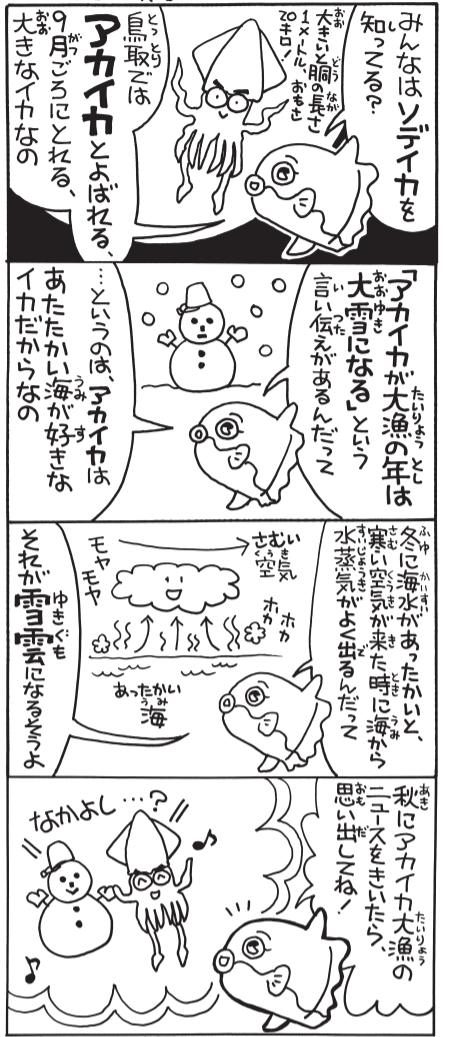 みんなはソデイカを
知ってる?
大きいと胴の長さ
1メートル、おもさ
20キロ!
鳥取では
アカイカとよばれる、
9月ごろにとれる、
大きなイカなの
「アカイカが大漁の年は
大雪になる」という
言い伝えがあるんだって
…というのは、アカイカは
あたたかい海が好きな
イカだからなの
冬に海水があったかいと、
寒い空気が来た時に海から
水蒸気がよく出るんだって
さむい
空気
モヤ
モヤ
ホカ
ホカ
あったかい
海
それが雪雲になるそうよ
秋にアカイカ大漁の
ニュースをきいたら、
思い出してね!
なかよし…?